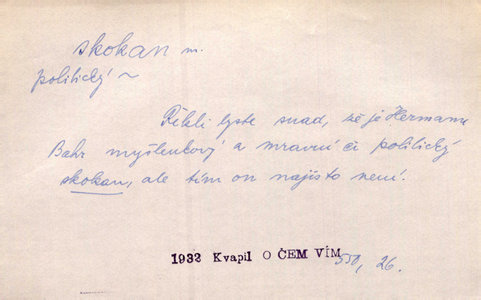 skokan m.
politický ~
Řekli byste snad, že je Hermann
Bahr myšlenkový a mravní či politický
skokan, ale tím on najisto není.
1932 Kvapil O ČEM VÍM 550, 26.